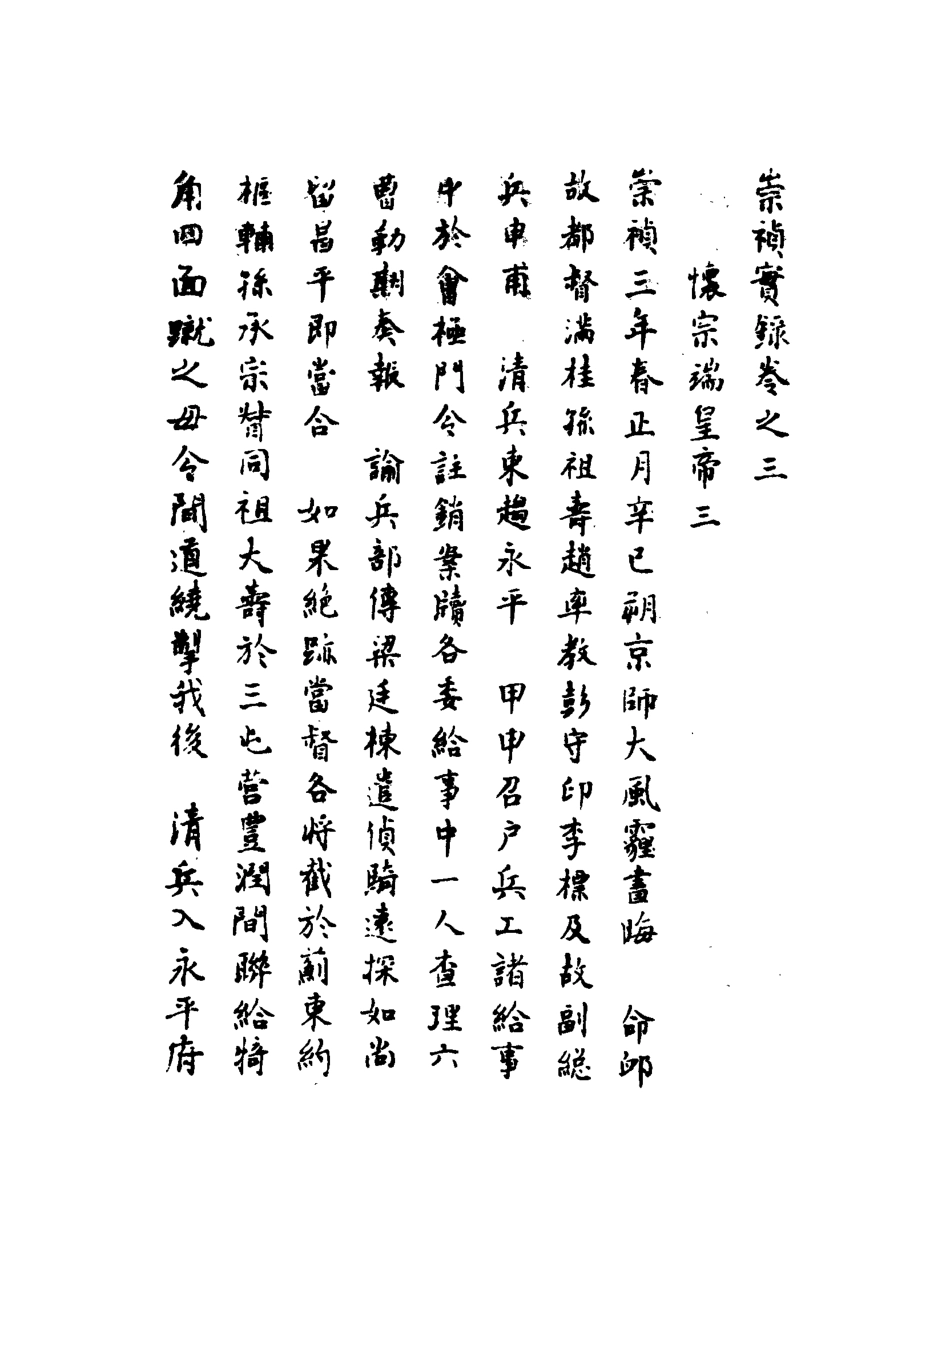 崇禎實錄卷之三
懷宗端皇帝三
崇禎三年春正月辛巳朔京師大風霾晝晦　命卹
故都督滿桂孫祖壽趙率教彭守印李標及故副総
兵申甫　清兵東趨永平　甲申召户兵工諸給事
中於會極門令註銷案牘各委給事中一人查理六
曹動期奏報　諭兵部傳梁廷棟遣偵騎遠探如尚
留昌平即當合　如果絶跡當督各将截於薊東約
枢輔孫承宗督同祖大壽於三屯营豐潤間聯給犄
角四面蹴之毋令間道繞掣我後　清兵入永平府